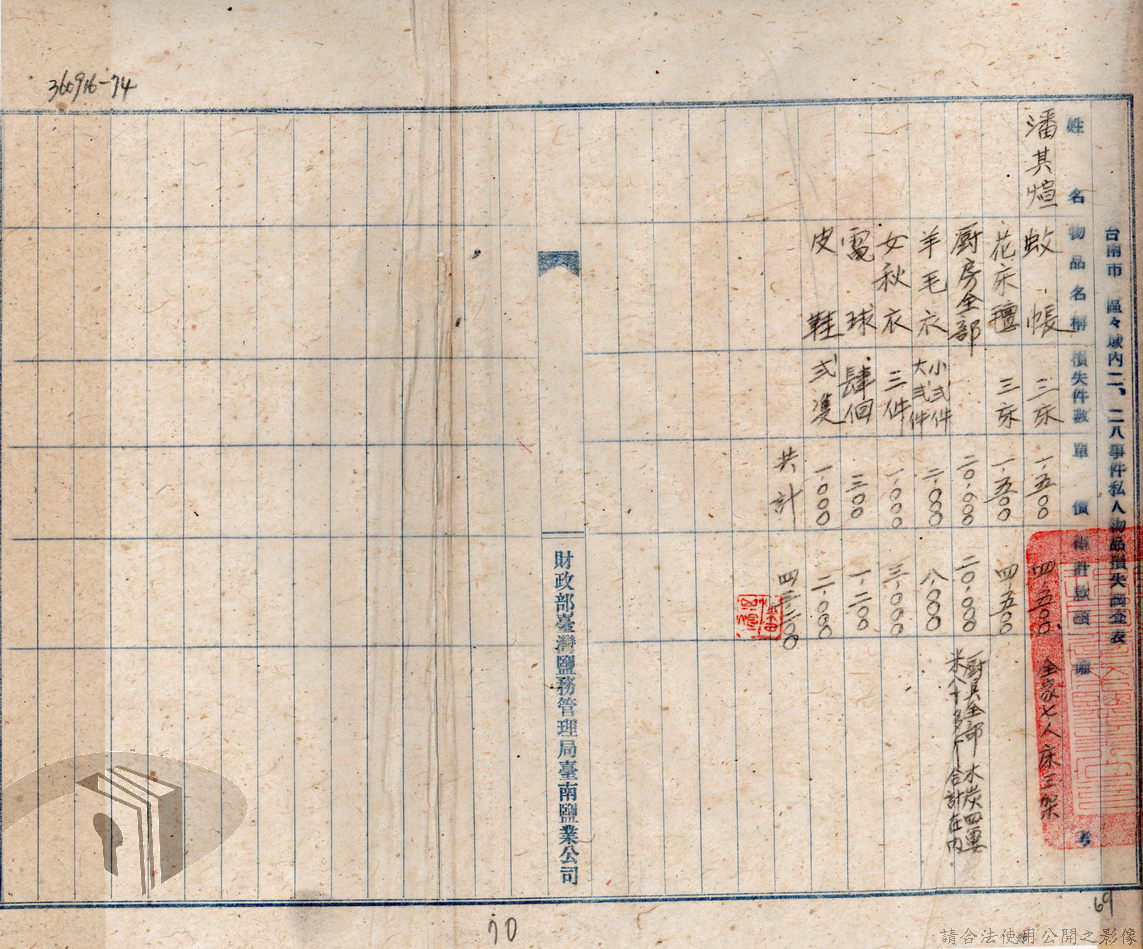 360916-74
台南市 區々域內二、二八事件私人物品損失調查表
姓名 物品名稱 損失件數 單價 總計款額 備考
潘其煊 蚊帳 三床 一.五〇〇 四.五〇〇 全家七人床三架
花床氊 三床 一.五〇〇 四.五〇〇
厨房全部 二〇.〇〇〇 二〇.〇〇〇 厨具全部 木炭四簍 米八十多斤 合計在內
羊毛衣 小弍件 大弍件 二.〇〇〇 八.〇〇〇
女秋衣 三件 一.〇〇〇 三.〇〇〇
電球 肆個 三〇〇 一.二〇〇
皮鞋 弍双 一.〇〇〇 二.〇〇〇
共計 四三.二〇〇
財政部臺灣鹽務管理局臺南鹽業公司
70
69
請合法使用公開之影像